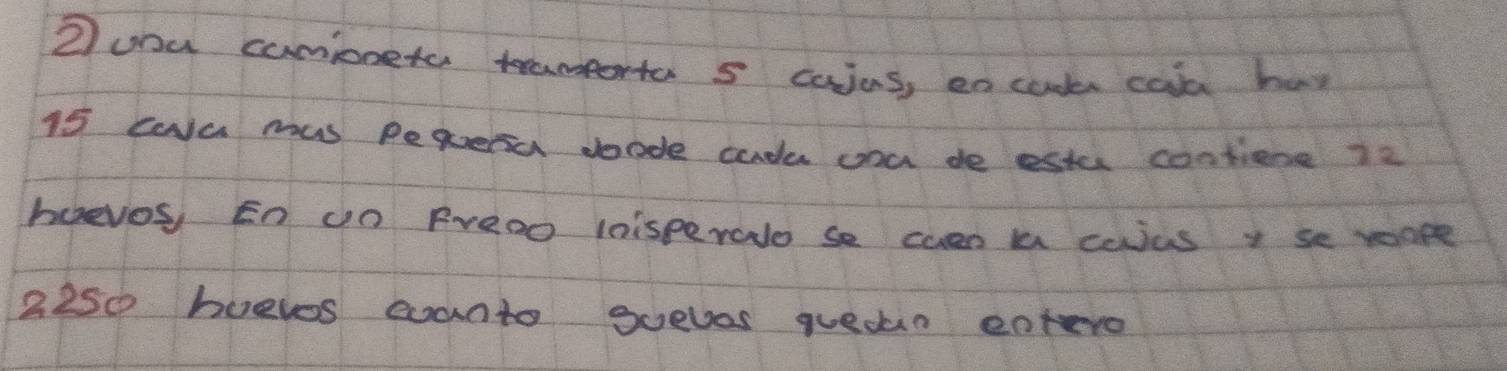 ② una camioneta transporta 5 cajas, en cada caja hay
15 caja mas pequeña donde cada una de esta contiene 72
huevos, En un Freno inisperado se caen la cajas y se rompe
2250 huevos cuanto guevos quedan entero